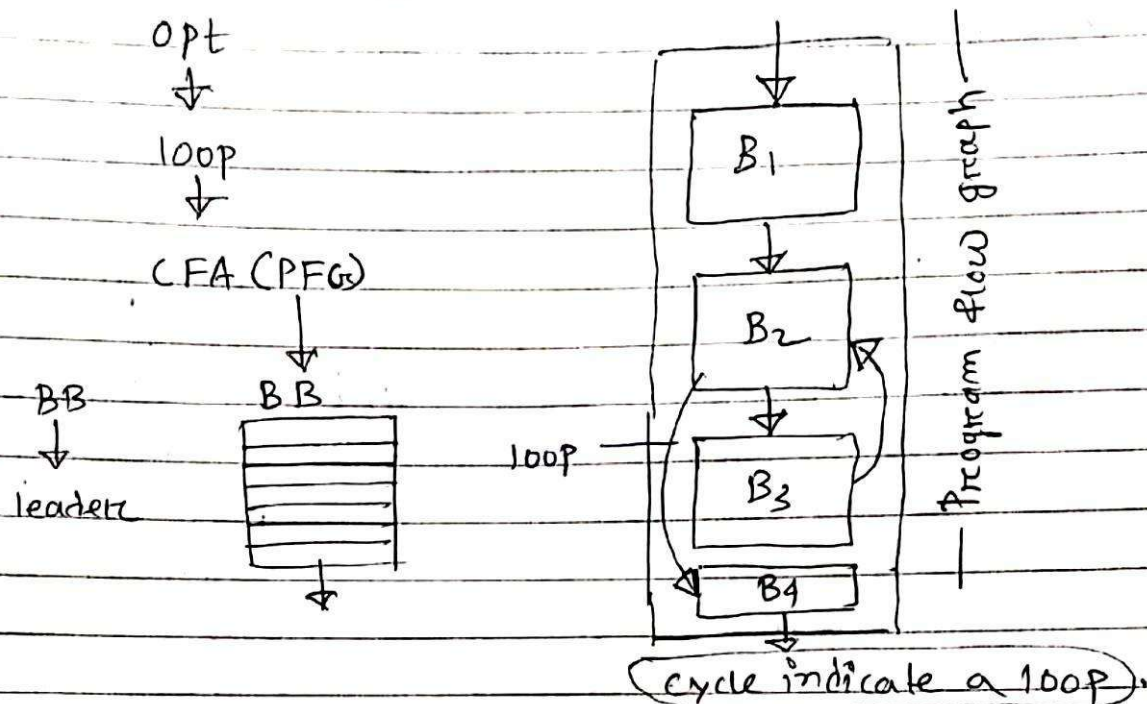 opt
loop
CFA (PFG)
BB
leader
BB
loop
B1
B2
B3
B4
Program flow graph
cycle indicate a loop.